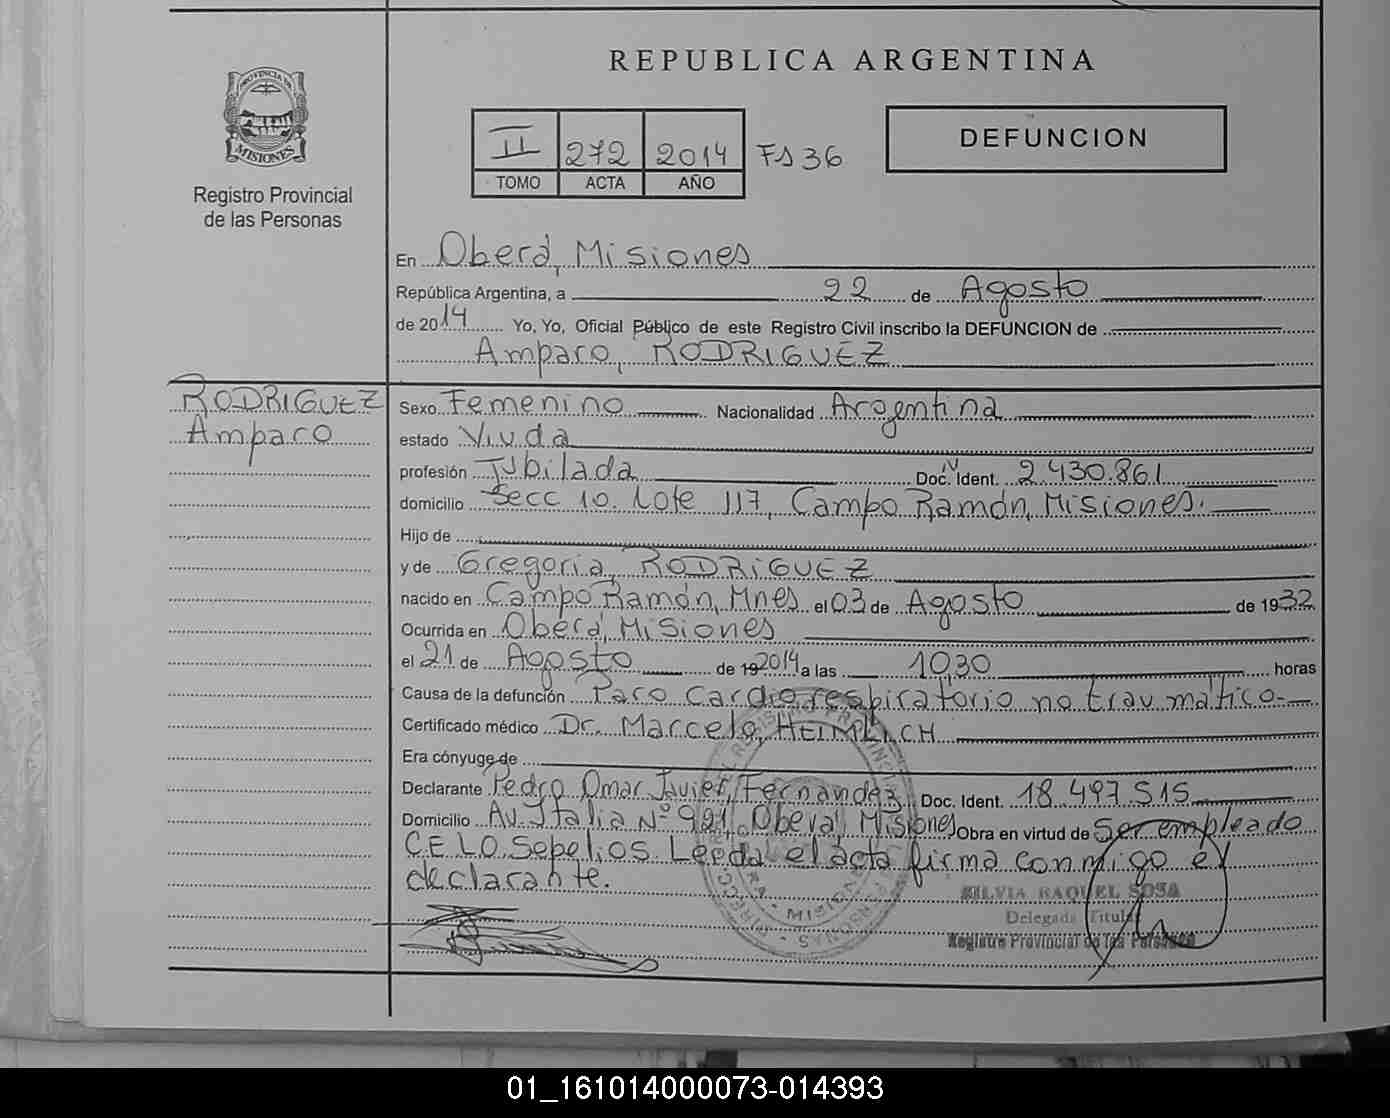 REPUBLICA ARGENTINA
PROVINCIA DE
MISIONES
Registro Provincial
de las Personas
II 272 2014 FS 36
TOMO ACTA AÑO
DEFUNCION
En Oberá, Misiones
República Argentina, a 22 de Agosto
de 2014 Yo, Yo, Oficial Público de este Registro Civil inscribo la DEFUNCION de
Amparo, RODRIGUEZ
RODRIGUEZ
Amparo
Sexo Femenino Nacionalidad Argentina
estado Viuda
profesión Jubilada Doc. Ident. 2.430.861
domicilio Secc 10. Lote 117, Campo Ramón, Misiones.
Hijo de
y de Gregoria, RODRIGUEZ
nacido en Campo Ramón, Mnes el 03 de Agosto de 1932
Ocurrida en Oberá, Misiones
el 21 de Agosto de 19 2014 a las 1030 horas
Causa de la defunción Paro Cardiorespiratorio no traumático
Certificado médico Dr. Marcelo, HEIMLICH
Era cónyuge de
Declarante Pedro Omar Javier, Fernandez Doc. Ident. 18.497.515
Domicilio Av. Italia Nº 921, Oberá, Misiones Obra en virtud de Ser empleado
CELO Sepelios. Leida el acta firma conmigo el
declarante.
SILVIA RAQUEL SOSA
Delegada Titular
Registro Provincial de las Personas
01_161014000073-014393